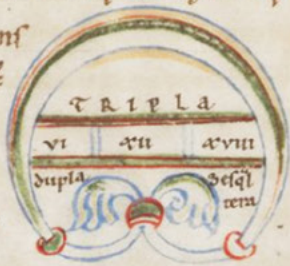 TRIPLA
VI XII XVIII
dupla sesq̅l
tera